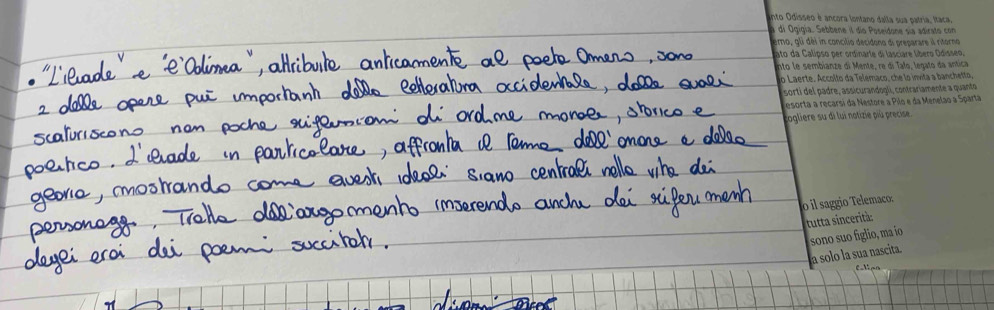 • "L'Iliade" e "l'Odissea", attribuite anticamente al poeta Omero, sono
2 delle opere più importanti della letteratura occidentale, dalle quali
scaturiscono non poche riflessioni di ordine morale, storico e
poetico. L'Iliade in particolare, affronta il tema dell'onore e della
gloria, mostrando come questi ideali siano centrali nella vita dei
personaggi. Tratta dell'argomento inserendo anche dei riferimenti
degli eroi dei poemi succitati.
nto Odisseo è ancora lontano dalla sua patria, Itaca,
a di Ogigia. Sebbene il dio Poseidone sia adirato con
erno, gli dèi in concilio decidono di preparare il ritorno
ato da Calipso per ordinarle di lasciare libero Odisseo,
nto le sembianze di Mente, re di Tafo, legato da antica
o Laerte. Accolto da Telemaco, che lo invita a banchetto,
sorti del padre, assicurandogli, contrariamente a quanto
esorta a recarsi da Nestore a Pilo e da Menelao a Sparta
cogliere su di lui notizie più precise.
o il saggio Telemaco:
tutta sincerità:
sono suo figlio, ma io
a solo la sua nascita.